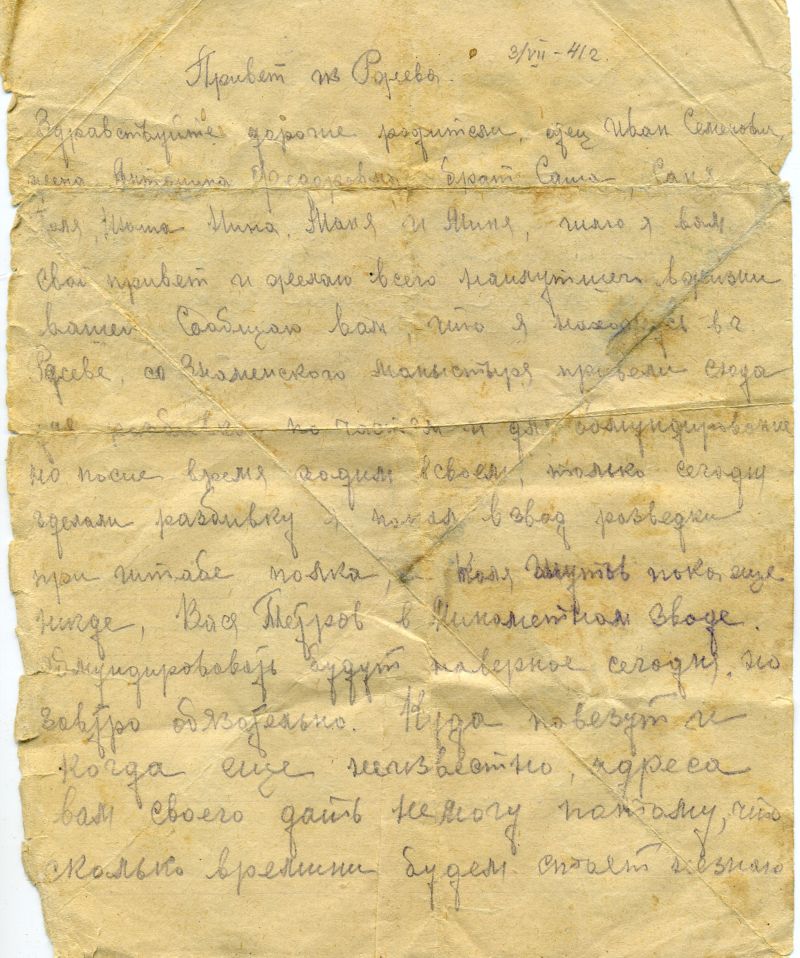 3/VII - 41 г.
Привет из Ржева.
Здравствуйте дорогие родители, отец Иван Семенович,
жена Антанина Федоровна, брат Саша, Саня
Толя, Нина, Маня и Миня, шлю я вам
свой привет и желаю всего наилутшего вжизни
вашей Сообщаю вам, что я нахожусь в г.
Ржеве, со Знаменского маныстыря привели сюда
для разбивки по частям и для обмундирования
но посие время ходим всвоем, только сегодня
зделали разбивку я попал взвод розведки
при штабе полка, Коля Шутов пока еще
нигде, Вася Петров в Минометном Зводе.
обмундировавать будут наверное сегодня, но
завтро обязательно. Куда повезут и
когда еще неизвестно, адреса
вам своего дать немогу потому, что
сколько времини будем стоять незнаю